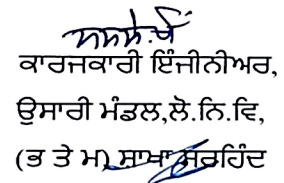 ਕਾਰਜਕਾਰੀ ਇੰਜੀਨੀਅਰ,
ਉਸਾਰੀ ਮੰਡਲ,ਲੋ.ਨਿ.ਵਿ,
(ਭ ਤੇ ਮ) ਸਾਖਾ ਸਰਹਿੰਦ